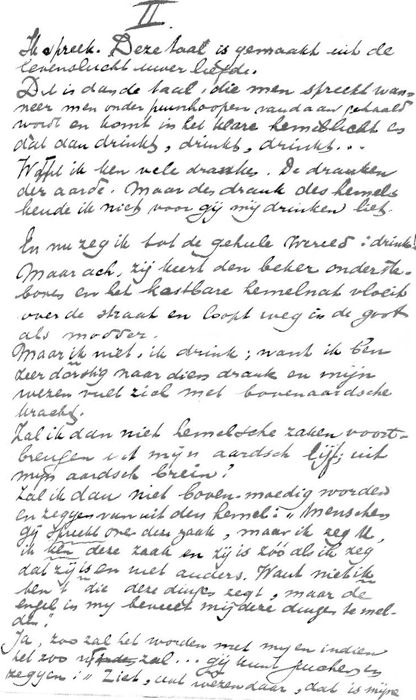 II
Ik spreek. Deze taal is gemaakt uit de
levenslucht uwer liefde.
Dit is dan de taal, die men spreekt wan-
neer men onder puinhoopen vandaan gehaald
wordt en komt in het klare hemellicht en
dat dan drinkt, drinkt, drinkt...
Want ik ken vele dranken. De dranken
der aarde. Maar des drank des hemels
kende ik niet voor gij mij drinken liet.
En nu zeg ik tot de geheele wereld: drink!
Maar ach, zij keert den beker onderste-
boven en het kostbare hemelnat vloeit
over de straat en loopt weg in de goot
als modder.
Maar ik niet, ik drink; want ik ben
zeer dorstig naar dien drank en mijn
wezen vult zich met bovenaardsche
kracht.
Zal ik dan niet hemelsche zaken voort-
brengen uit mijn aardsch lijf, uit
mijn aardsch brein?
Zal ik dan niet boven-moedig worden
en zeggen van uit den hemel: "Menschen
gij spreekt over deze zaak, maar ik zeg U,
ik ken deze zaak en zij is zoo als ik zeg
dat zij is en niet anders. Want niet ik
ben 't die deze dingen zegt, maar de
engel in mij beveelt mij deze dingen te mel-
den!
Ja, zoo zal het worden met mij en indien
het zoo zal... gij kunt juichen en
zeggen: "Ziet, wezen daar, dat is mijne